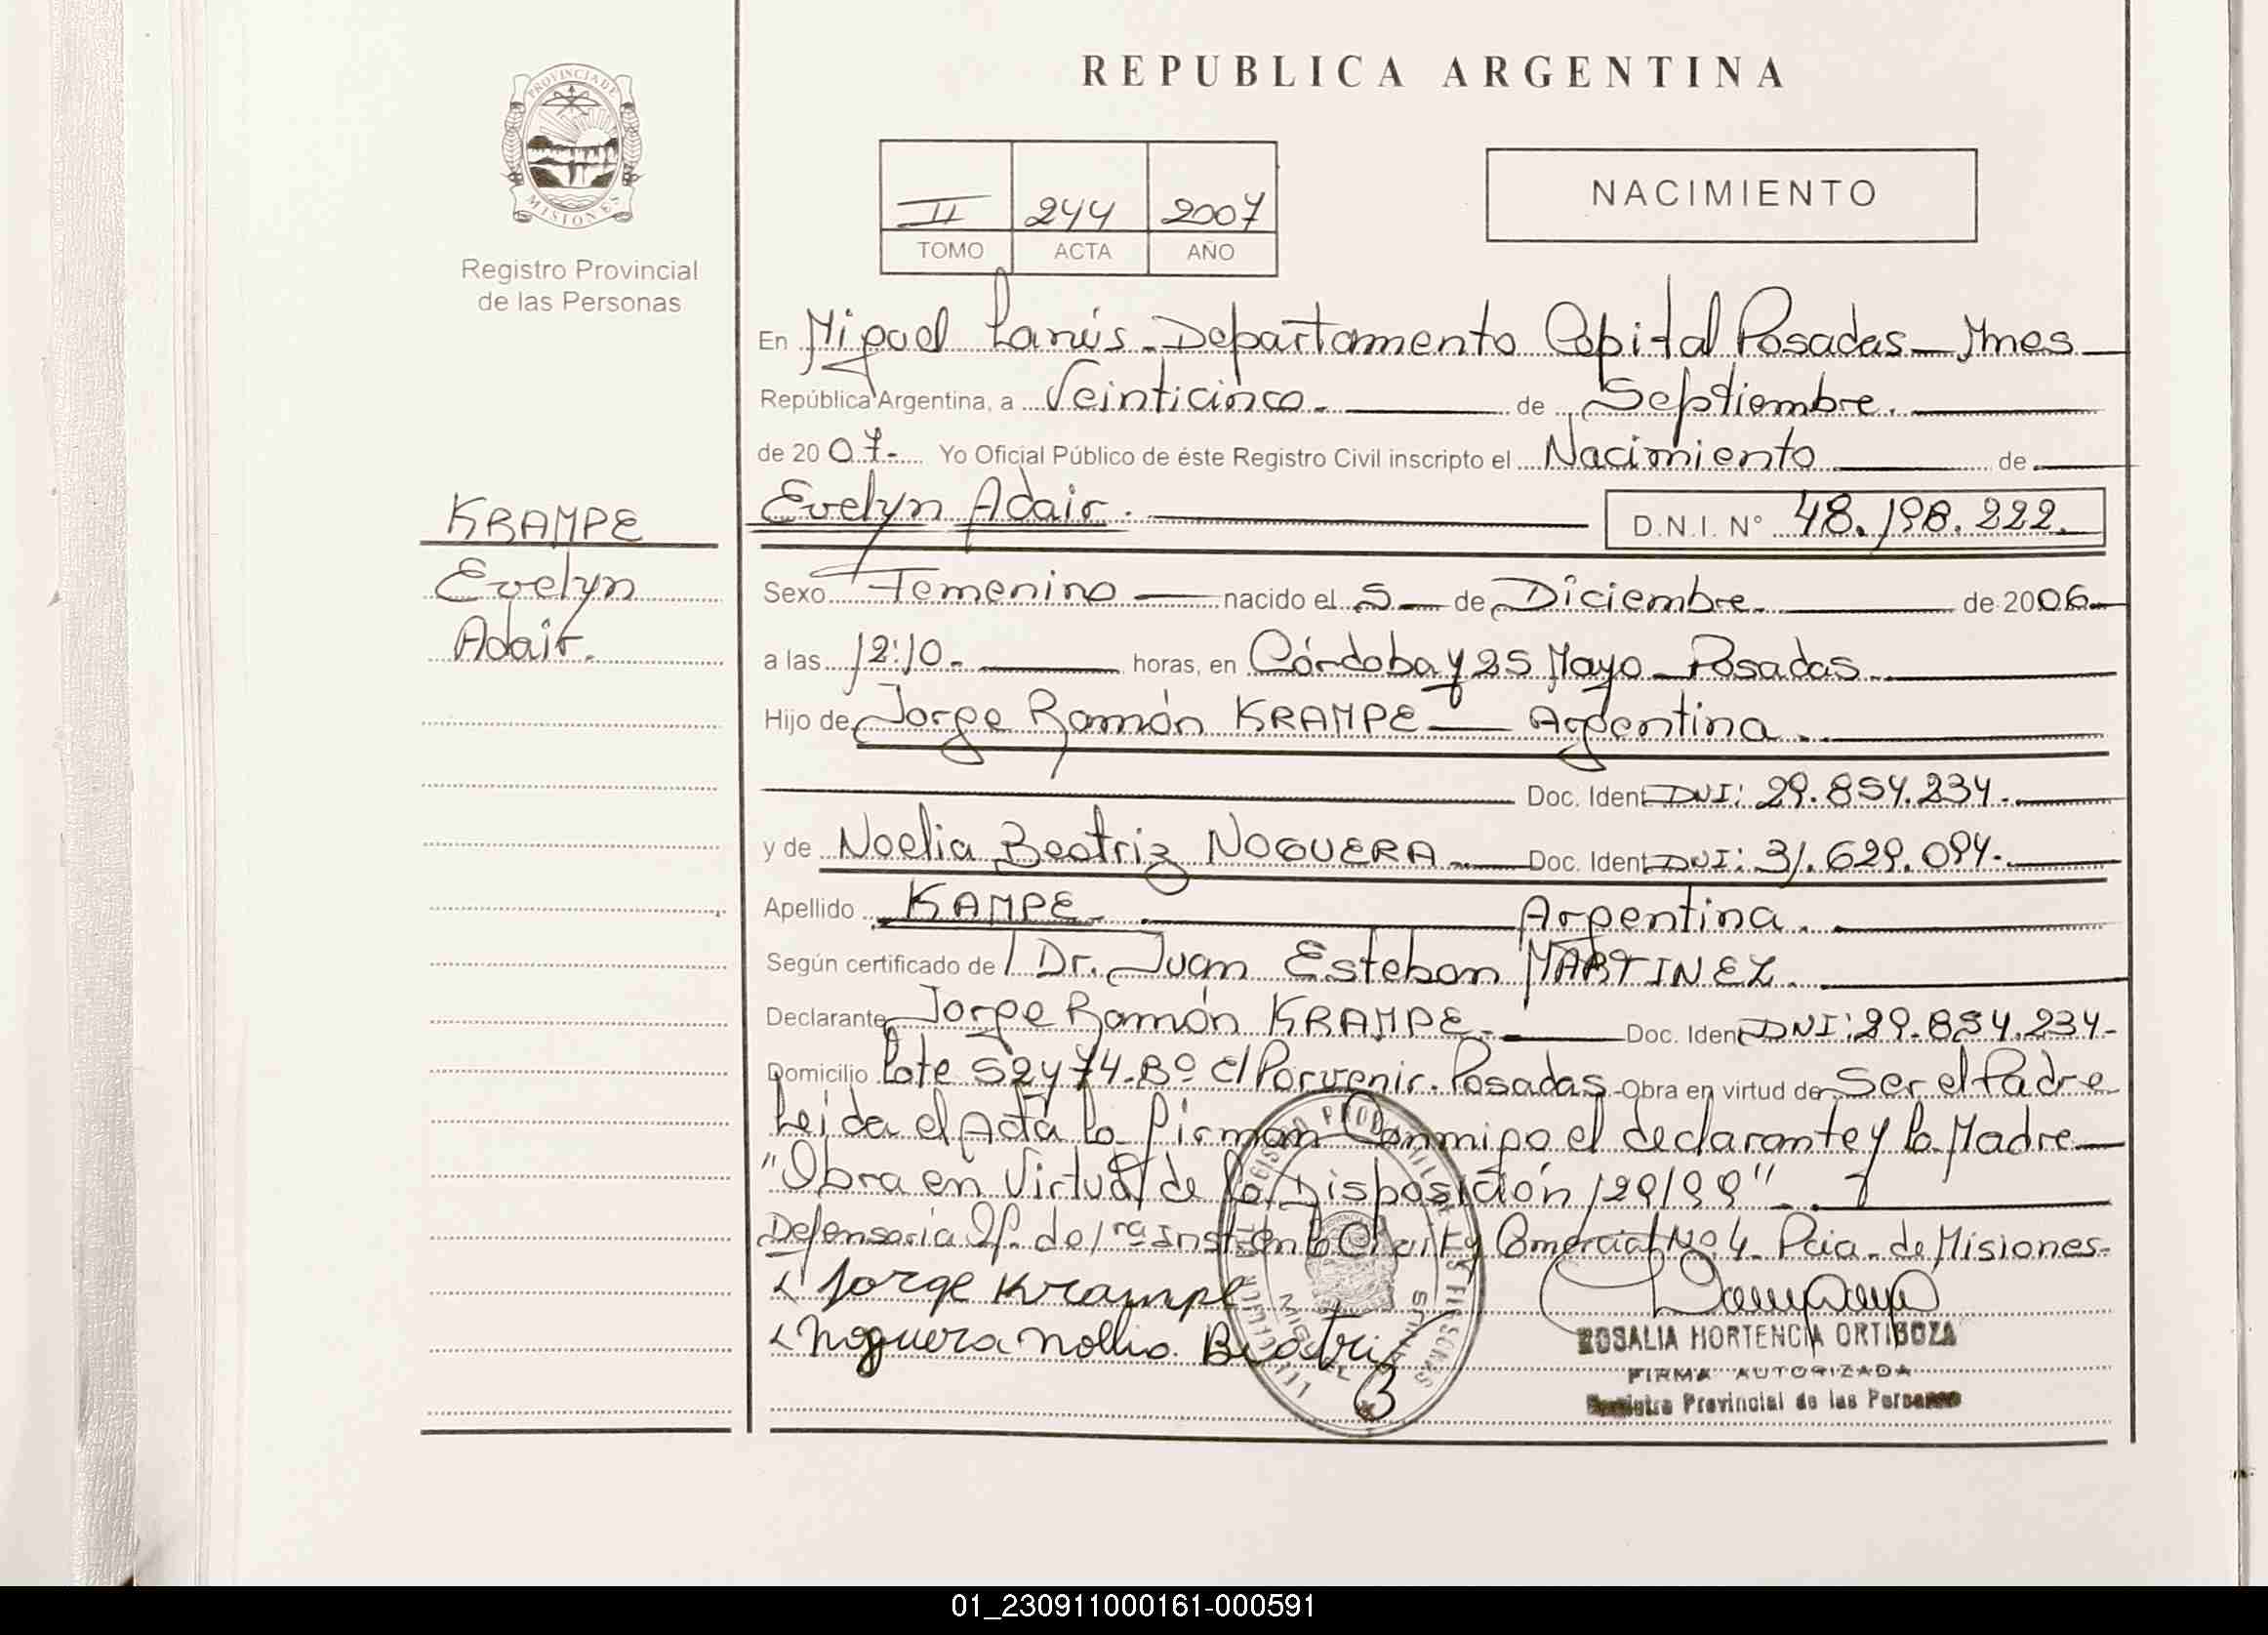 REPUBLICA ARGENTINA
PROVINCIA DE
MISIONES
Registro Provincial
de las Personas
II 244 2007
TOMO ACTA AÑO
NACIMIENTO
En Miguel Lanús - Departamento Capital Posadas - Mnes
República Argentina, a Veinticinco - de Septiembre.
de 2007 - Yo Oficial Público de éste Registro Civil inscripto el Nacimiento de
KRAMPE
Evelyn
Adair.
Evelyn Adair. D.N.I. N° 48.198.222.
Sexo Femenino nacido el 5 de Diciembre. de 2006
a las 12:10 - horas, en Córdoba y 25 Mayo - Posadas.
Hijo de Jorge Ramón KRAMPE - Argentina.
Doc. Ident. DNI: 29.854.234.
y de Noelia Beatriz NOGUERA - Doc. Ident. DNI: 31.629.094.
Apellido KAMPE. Argentina.
Según certificado de Dr. Juan Esteban MARTINEZ.
Declarante Jorge Ramón KRAMPE. Doc. Ident. DNI: 29.854.234-
Domicilio Lote 52 y 74 - Bº El Porvenir. Posadas Obra en virtud de Ser el Padre
Leida el Acta la firman Conmigo el declarante y la Madre
"Obra en Virtud de la Disposición 129/99"
Defensoria Of. de 1ra Inst. en lo Civil y Comercial Nº 4 - Pcia. de Misiones-
Jorge Krampe
Noguera Noelia Beatriz
ROSALIA HORTENCIA ORTIGOZA
FIRMA AUTORIZADA
Registro Provincial de las Personas
01_230911000161-000591